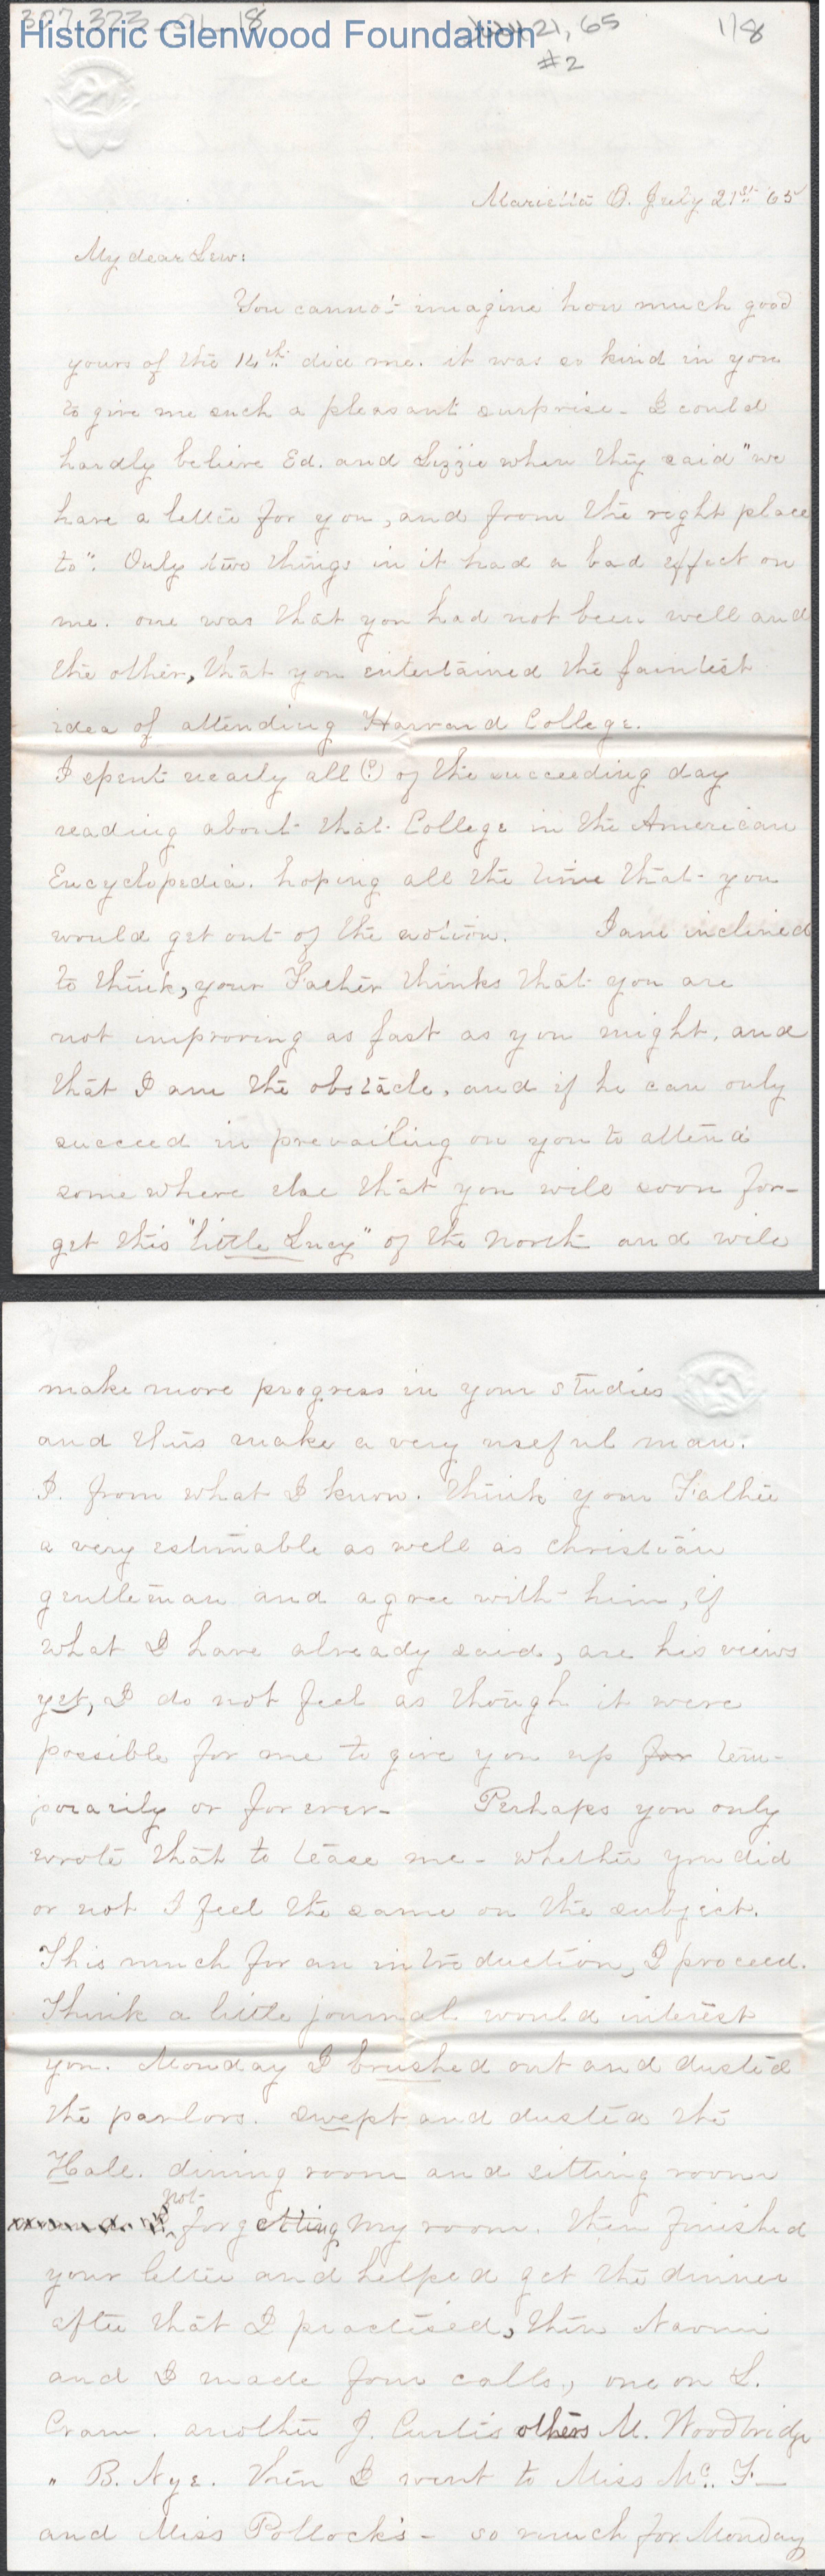 307.323 - 01 - 18
Historic Glenwood Foundation
July 21, 65
1/8
#2
Marietta O. July 21st '65
My dear Lew:
You cannot imagine how much good
yours of the 14th did me. it was so kind in you
to give me such a pleasant surprise - I could
hardly believe Ed. and Lizzie when they said "we
have a letter for you, and from the right place
to". Only two things in it had a bad effect on
me. one was that you had not been well and
the other, that you entertained the faintest
idea of attending Harvard College.
I spent nearly all (?) of the succeeding day
reading about that College in the American
Encyclopedia. hoping all the time that you
would get out of the notion. I am inclined
to think, your Father thinks that you are
not improving as fast as you might, and
that I am the obstacle, and if he can only
succeed in prevailing on you to attend
some where else that you will soon for-
get this "little Lucy" of the north and will
make more progress in your studies
and thus make a very useful man.
I. from what I know. think your Father
a very estimable as well as christian
gentleman and agree with him, if
what I have already said, are his views
yet, I do not feel as though it were
possible for me to give you up for tem-
porarily or forever - Perhaps you only
wrote that to tease me - whether you did
or not I feel the same on the subject.
This much for an introduction, I proceed.
Think a little journal would interest
you. Monday I brushed out and dusted
the parlors. swept and dusted the
Hall. dining room and sitting room
not forgetting my room. then finished
your letter and helped get the dinner
after that I practised, then Naomi
and I made four calls, one on L.
Cram. another J. Curtis others M. Woodbridge
" B. Nye. then I went to Miss Mc. F—
and Miss Pollock's - so much for Monday